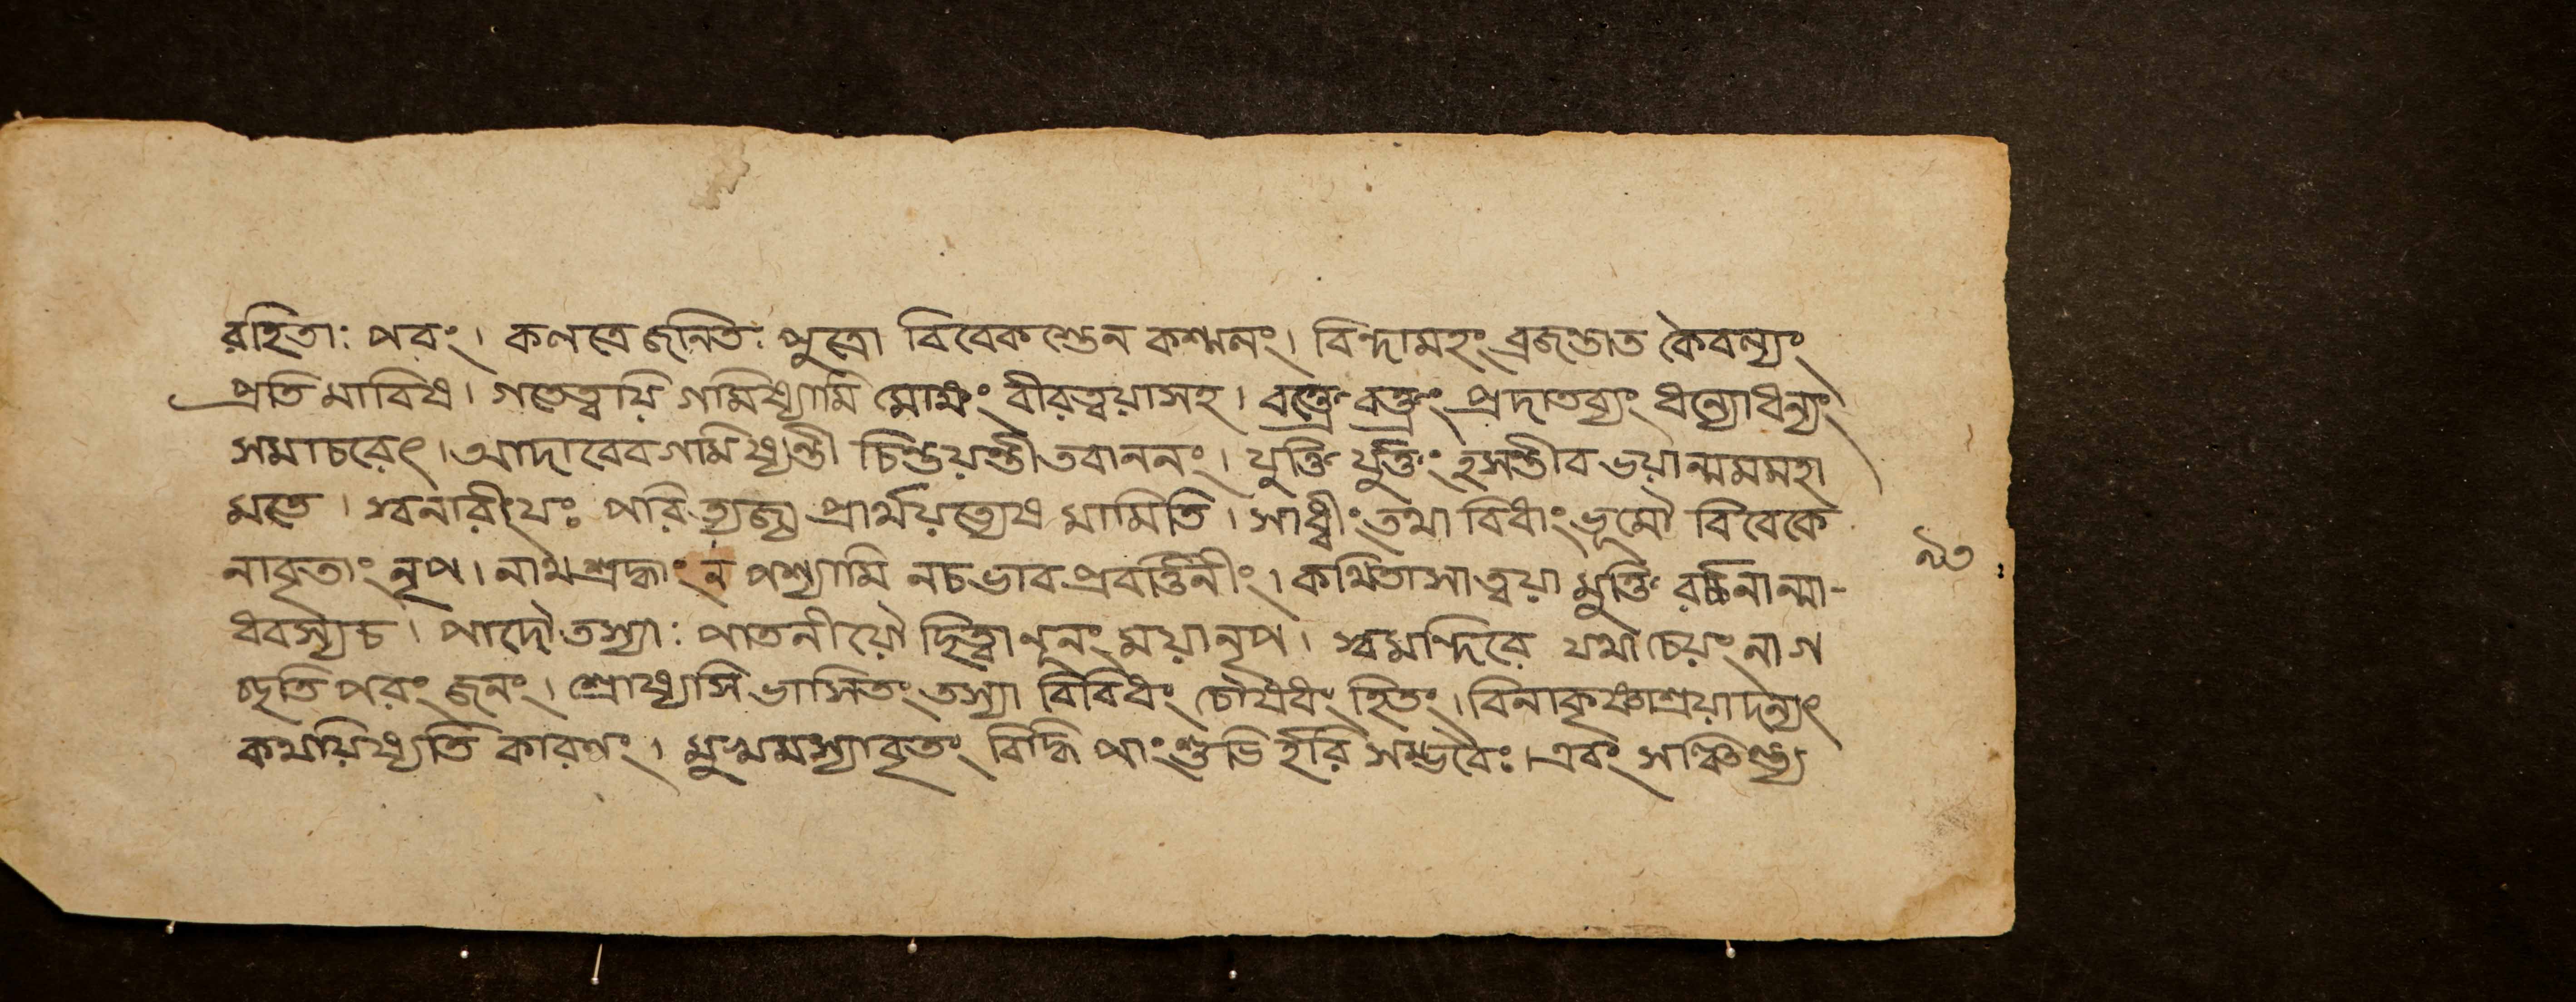 রহিতাঃ পরং। কলত্রে জনিতঃ পুত্রো বিবেকস্তেন কশ্মলং। বিন্দামহং ব্রজন্তাত কৈবল্যং
প্রতি মাবিষ। গতেত্বয়ি গমিষ্যামি মোক্ষং বীরত্বয়াসহ। বক্ত্রে বক্ত্রং প্রদাতব্যং ধন্যোধন্যং
সমাচরেৎ। আদাবেবগমিষ্যন্তী চিন্তয়ন্তীতবাননং। মুক্তি র্মুক্তং হসন্তীব ভয়ান্মমমহা
মতে। স্বনারীং যঃ পরিত্যজ্য প্রার্থয়ত্যেষ মামিতি। সাধ্বীং তথা বিধাং ভূমৌ বিবেকে
নাবৃতাং নৃপ। নাথ শ্রদ্ধাং ন পশ্যামি নচভাব প্রবর্ত্তিনীং। কথিতাসাত্বয়া মুক্তি র্বচনান্মা-
ধবস্যচ। পাদৌ তস্যাঃ পাতনীয়ৌ ছিত্বা নূনং ময়ানৃপ। স্বমন্দিরে যথাচেয়ং নাগ
চ্ছতি পরং জনং। শ্রোষ্যসি ভাসিতং তস্যা বিবিধং চৌষধং হিতং। বিনাকৃষ্ণাশ্রয়াদন্যৎ
কথয়িষ্যতি কারণং। মুখমস্যাবৃতং বিদ্ধি পাংশুভি র্হরি সম্ভবৈঃ। এবং সঞ্চিন্ত্য
৯৩